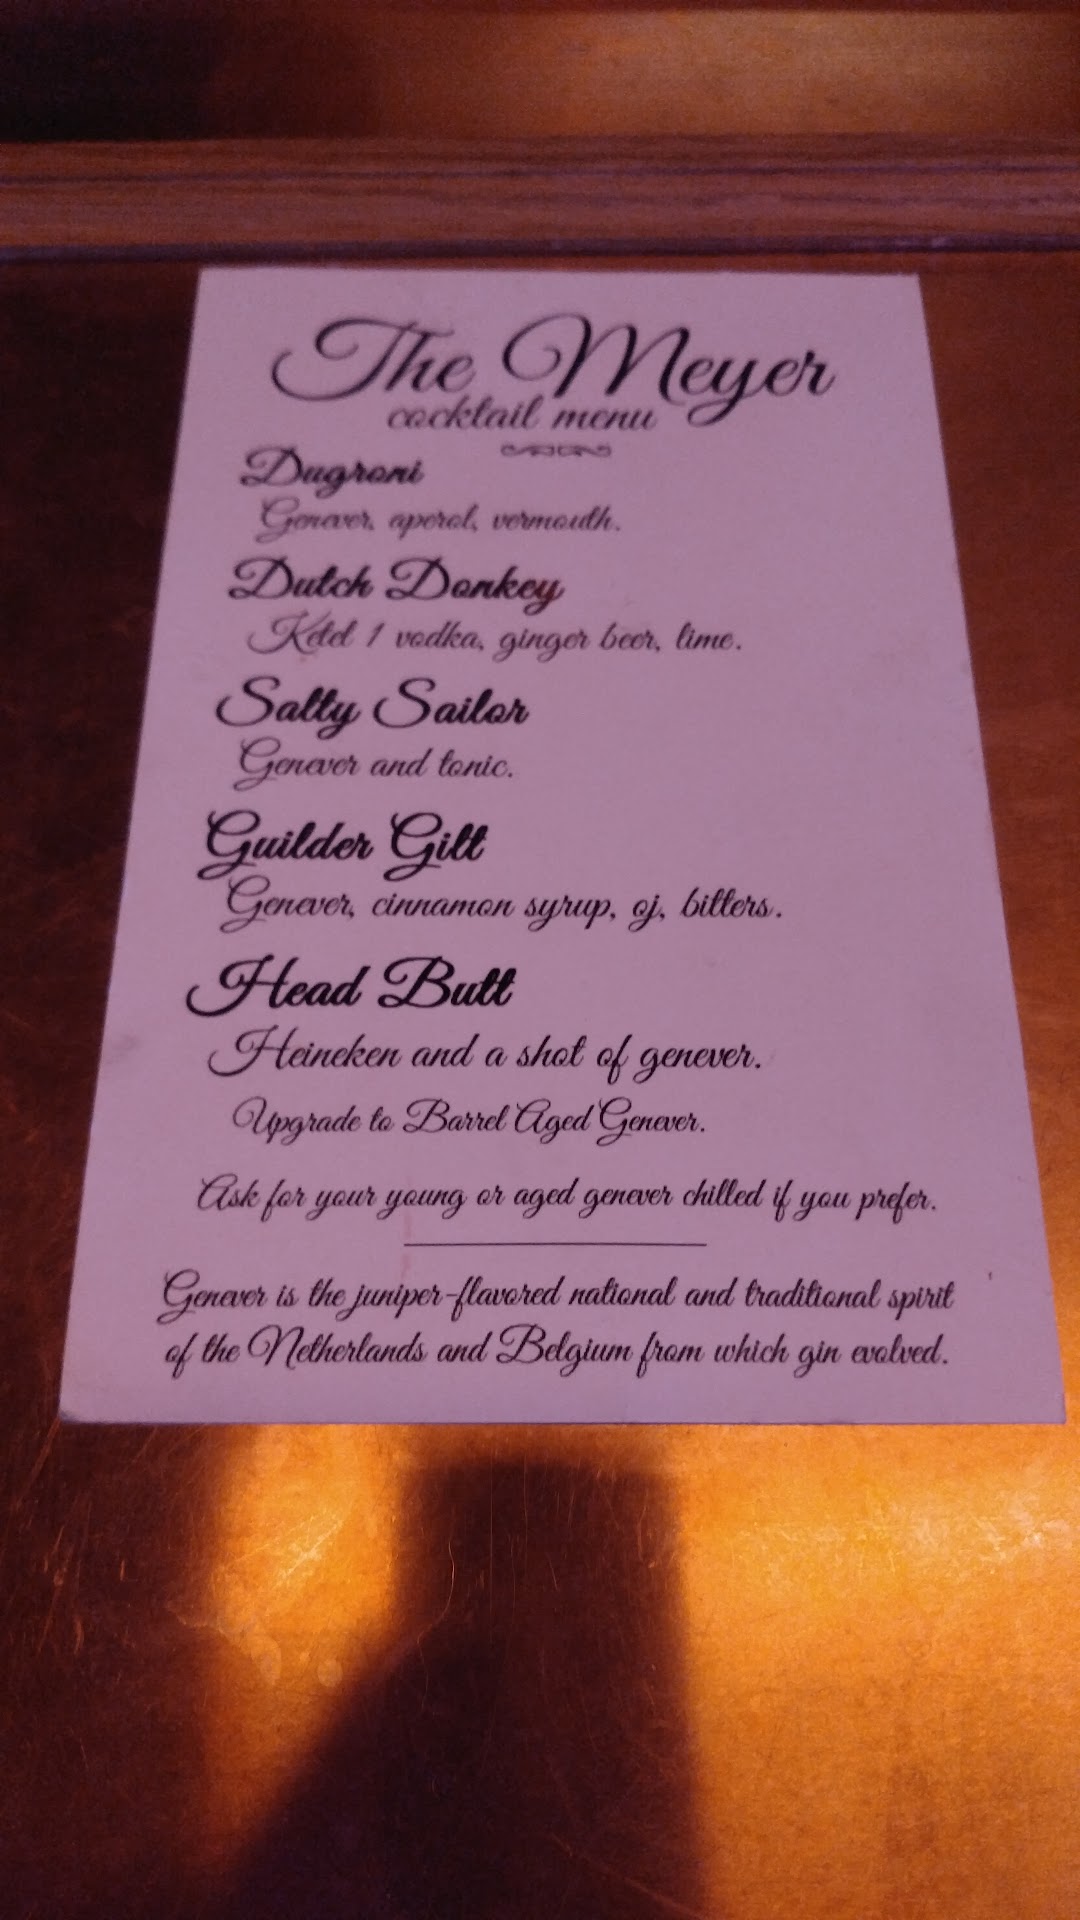 The Meyer
cocktail menu
Dugroni
Genever, aperol, vermouth.
Dutch Donkey
Ketel 1 vodka, ginger beer, lime.
Salty Sailor
Genever and tonic.
Guilder Gilt
Genever, cinnamon syrup, oj, bitters.
Head Butt
Heineken and a shot of genever.
Upgrade to Barrel Aged Genever.
Ask for your young or aged genever chilled if you prefer.
Genever is the juniper-flavored national and traditional spirit
of the Netherlands and Belgium from which gin evolved.